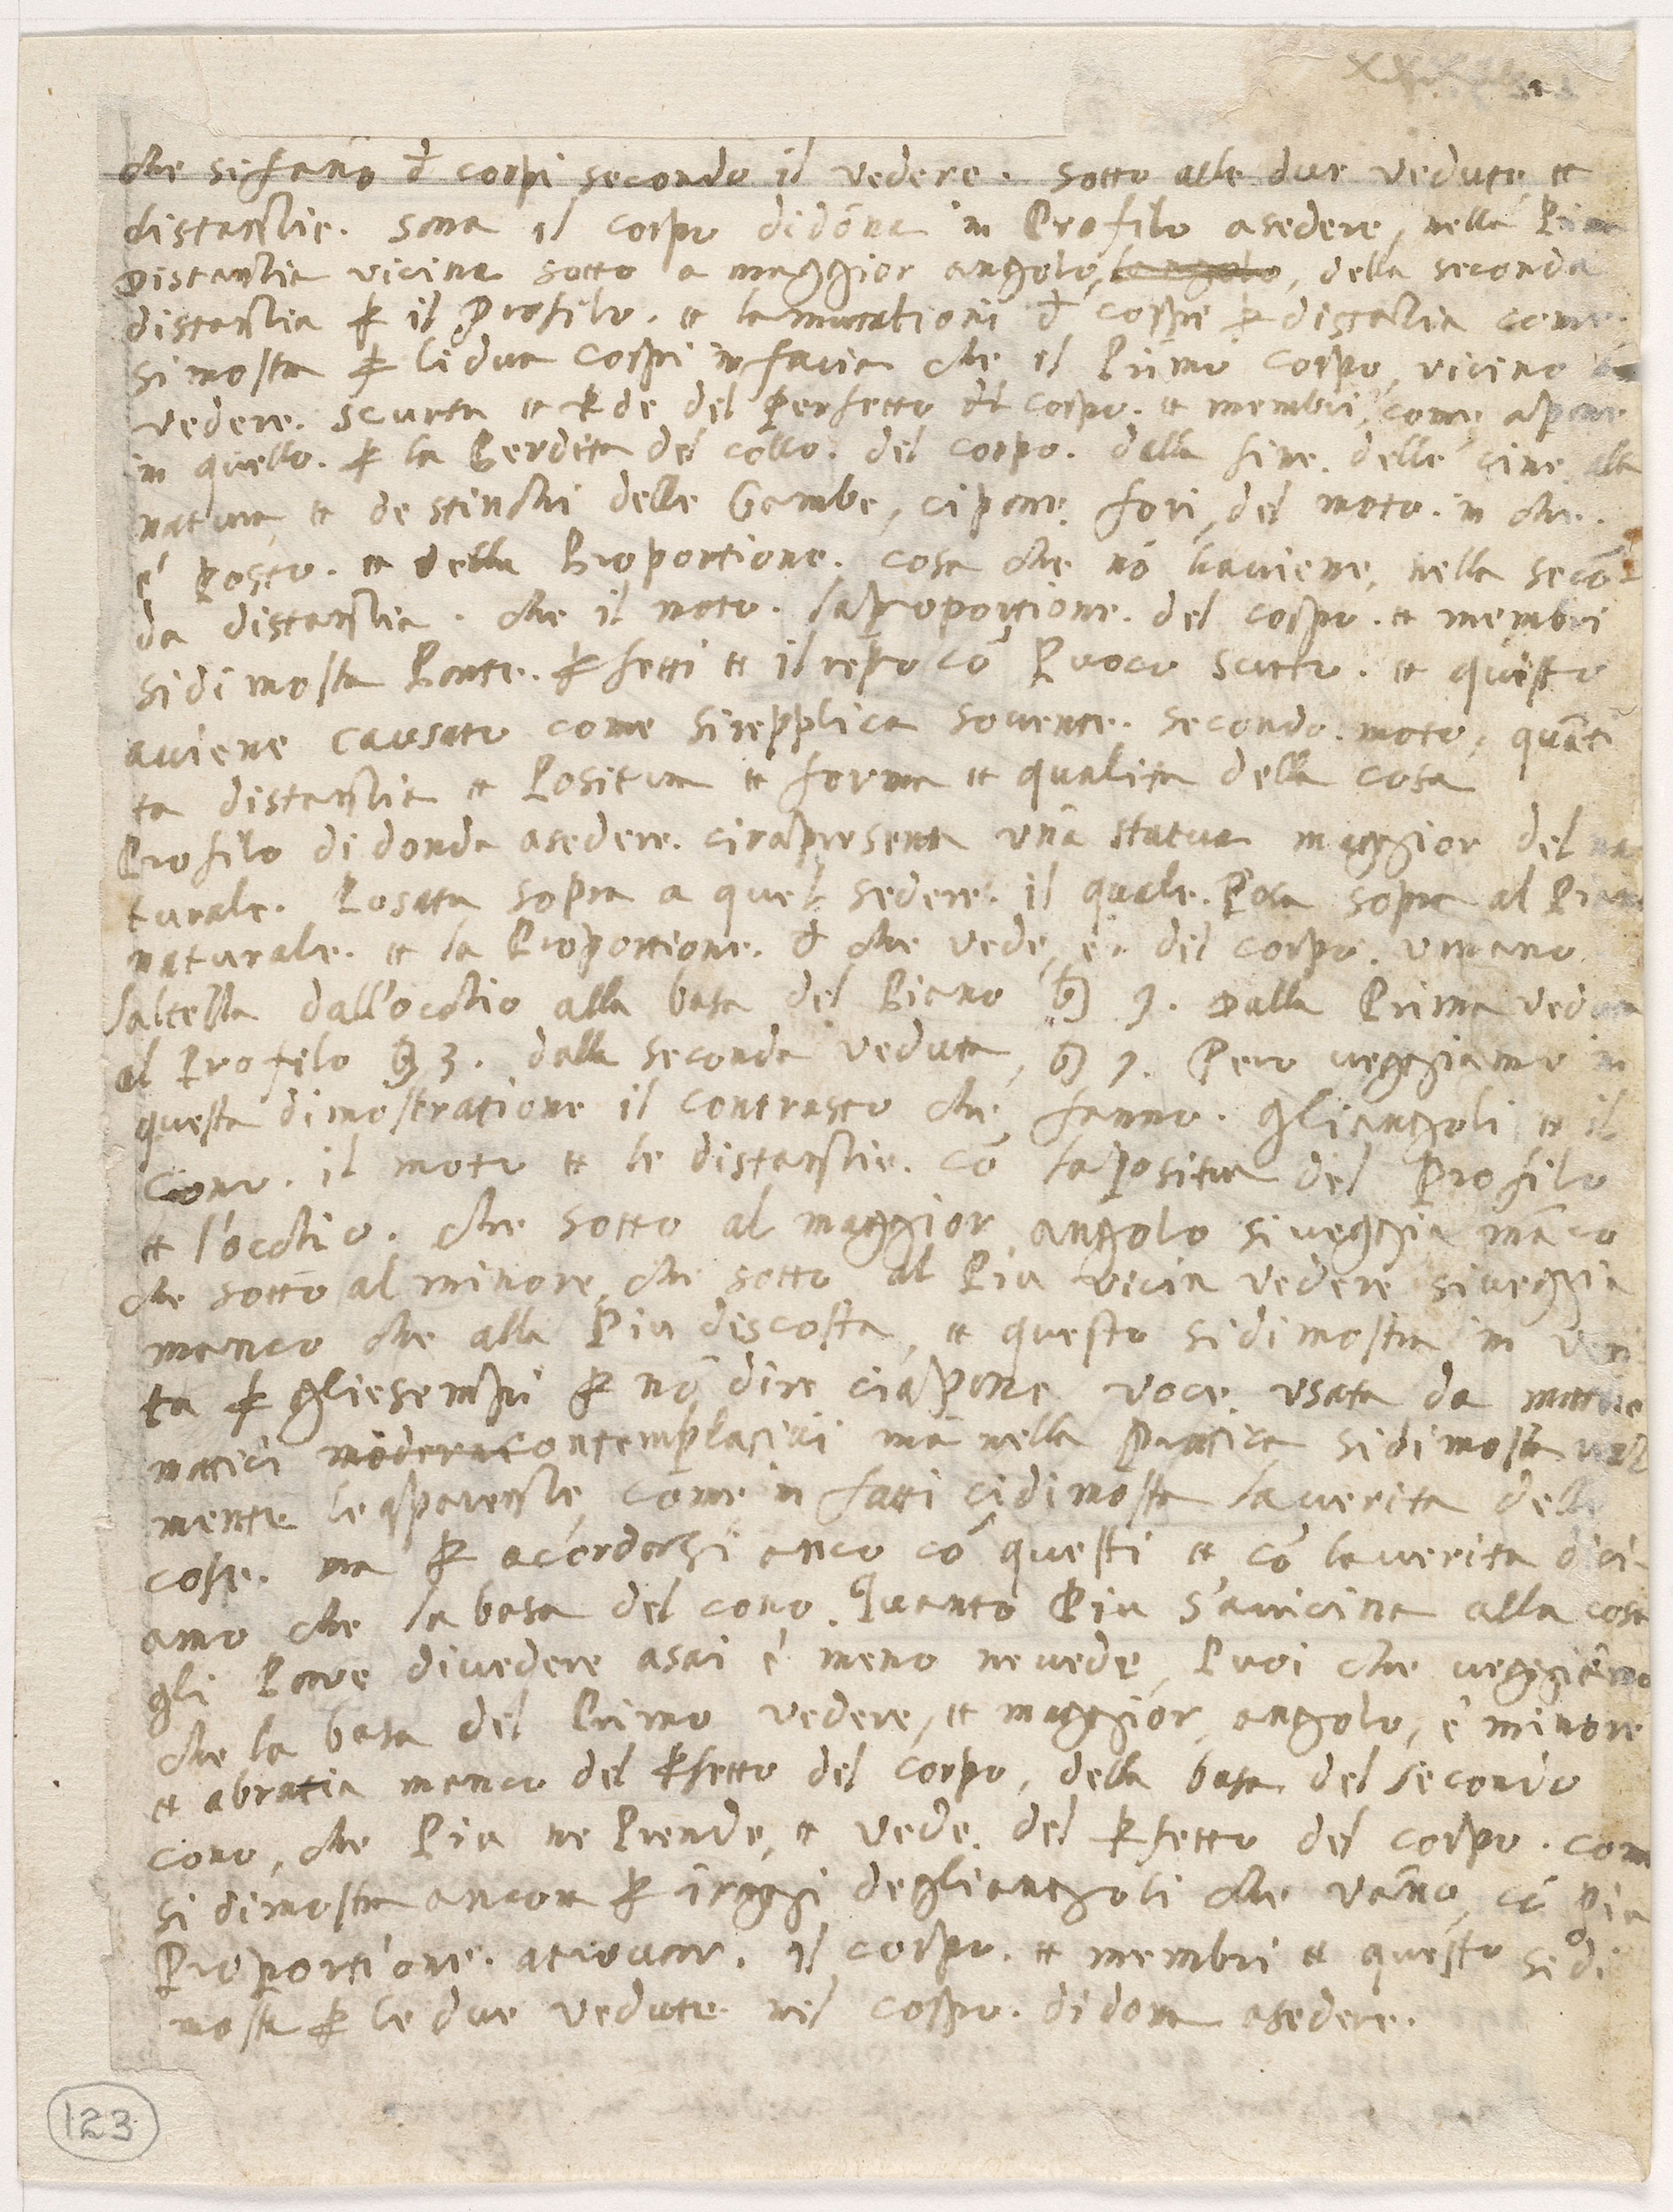 che si fano d corpi secondo il vedere. sotto alle due vedute et
distantie. sara il corpo di dona in Profilo a sedere, nella Prima
Distantia vicina sotto a maggior angolo, della seconda
distantia p il Profilo. et la mutationi d corpi p distantia come
si mostra p li dua corpi in facia che il Primo corpo, vicino
vedere. scurta et p de del Perfetto del corpo. et membri, come apare
in quello. p la Perdita del collo. del corpo. dalla fine. delle cine alla
natura, et de stinchi delle Gambe, ci pare. fori, del moto. in che.
e' Posto. et della Proportione. cosa che nō l'aviene, nella secō
da distantia. che il moto. la proportione. del corpo. et membri
si dimostra Parte. pfetti et il resto cō Puoco scurto. et questo
aviene causato come si repplica sovente. secondo. moto, quāti
ta distantia et Positura et forma et qualita della cosa
Profilo di donda a sedere. ci rapresenta una statua maggior del na
turale. Posata sopra a quel sedere. il quale. Posa sopra al Piano
naturale. et la Proportione. d che vede, e. del corpo. umano
l'altezza dall'occhio alla basa del Piano Dalla Prima veduta
al Profilo 3. dalla seconda veduta, Pero veggiamo in
questa dimostratione il contrasto che fanno. gli angoli et il
cono. il moto et le distantie. cō la positura del Profilo
et l'occhio. che sotto al maggior angolo si veggia māco
che sotto al minore, che sotto al Piu vicin vedere si veggia
manco che alla Piu discosta, et questo si dimostra in veri
ta p gli esempii p nō dire ci apare voce. usata da mathe
matici contemplativi ma nella Pratica si dimostra
mente le aparentie, come in fatti ci dimostra la verita delle
cose. ma p acordarsi anco cō questi et cō la verita dici
amo che la basa del cono. Quanto Piu s'avicina alla cosa
gli Pare di vedere asai e' meno ne vede, Puoi che veggiamo
che la basa del Primo vedere, et maggior angolo, e' minore
et abratia manco del pfetto del corpo, della basa del secondo
cono, che Piu ne Prende, et vede. del pfetto del corpo. come
si dimostra ancora p i raggi degli angoli che vāno, cō Piu
Proportione. a trovar. il corpo. et membri et questo si di
mostra p le due vedute nel corpo. di dona a sedere.
123